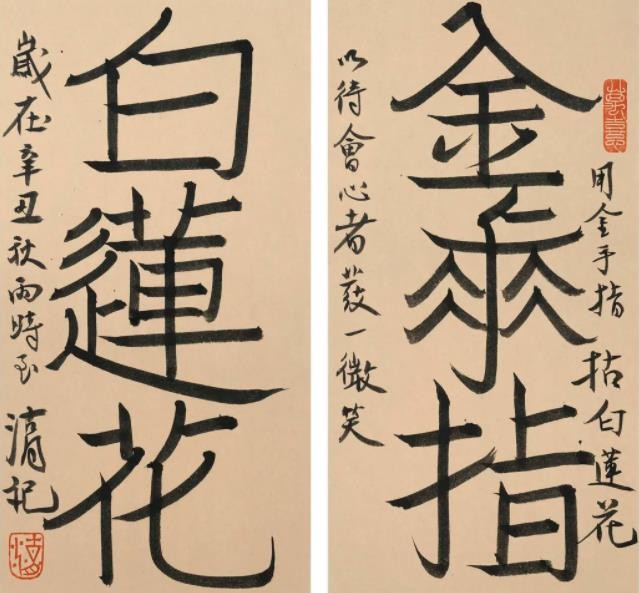 用金手指拈白蓮花
金手指
以待會心者發一微笑
白蓮花
歲在辛丑秋雨時至 記